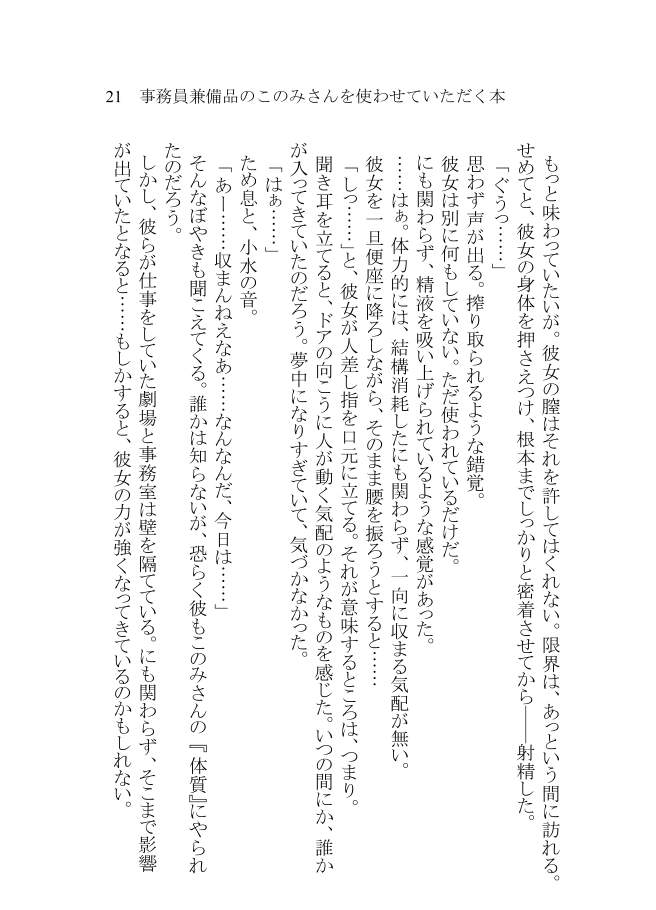 21　事務員兼備品のこのみさんを使わせていただく本
　もっと味わっていたいが。彼女の膣はそれを許してはくれない。限界は、あっという間に訪れる。
せめてと、彼女の身体を押さえつけ、根本までしっかりと密着させてから――射精した。
「ぐうっ……」
　思わず声が出る。搾り取られるような錯覚。
　彼女は別に何もしていない。ただ使われているだけだ。
　にも関わらず、精液を吸い上げられているような感覚があった。
　……はぁ。体力的には、結構消耗したにも関わらず、一向に収まる気配が無い。
　彼女を一旦便座に降ろしながら、そのまま腰を振ろうとすると……
「しっ……」と、彼女が人差し指を口元に立てる。それが意味するところは、つまり。
　聞き耳を立てると、ドアの向こうに人が動く気配のようなものを感じた。いつの間にか、誰か
が入ってきていたのだろう。夢中になりすぎていて、気づかなかった。
「はぁ……」
　ため息と、小水の音。
「あー……収まんねえなあ……なんなんだ、今日は……」
　そんなぼやきも聞こえてくる。誰かは知らないが、恐らく彼もこのみさんの『体質』にやられ
たのだろう。
　しかし、彼らが仕事をしていた劇場と事務室は壁を隔てている。にも関わらず、そこまで影響
が出ていたとなると……もしかすると、彼女の力が強くなってきているのかもしれない。